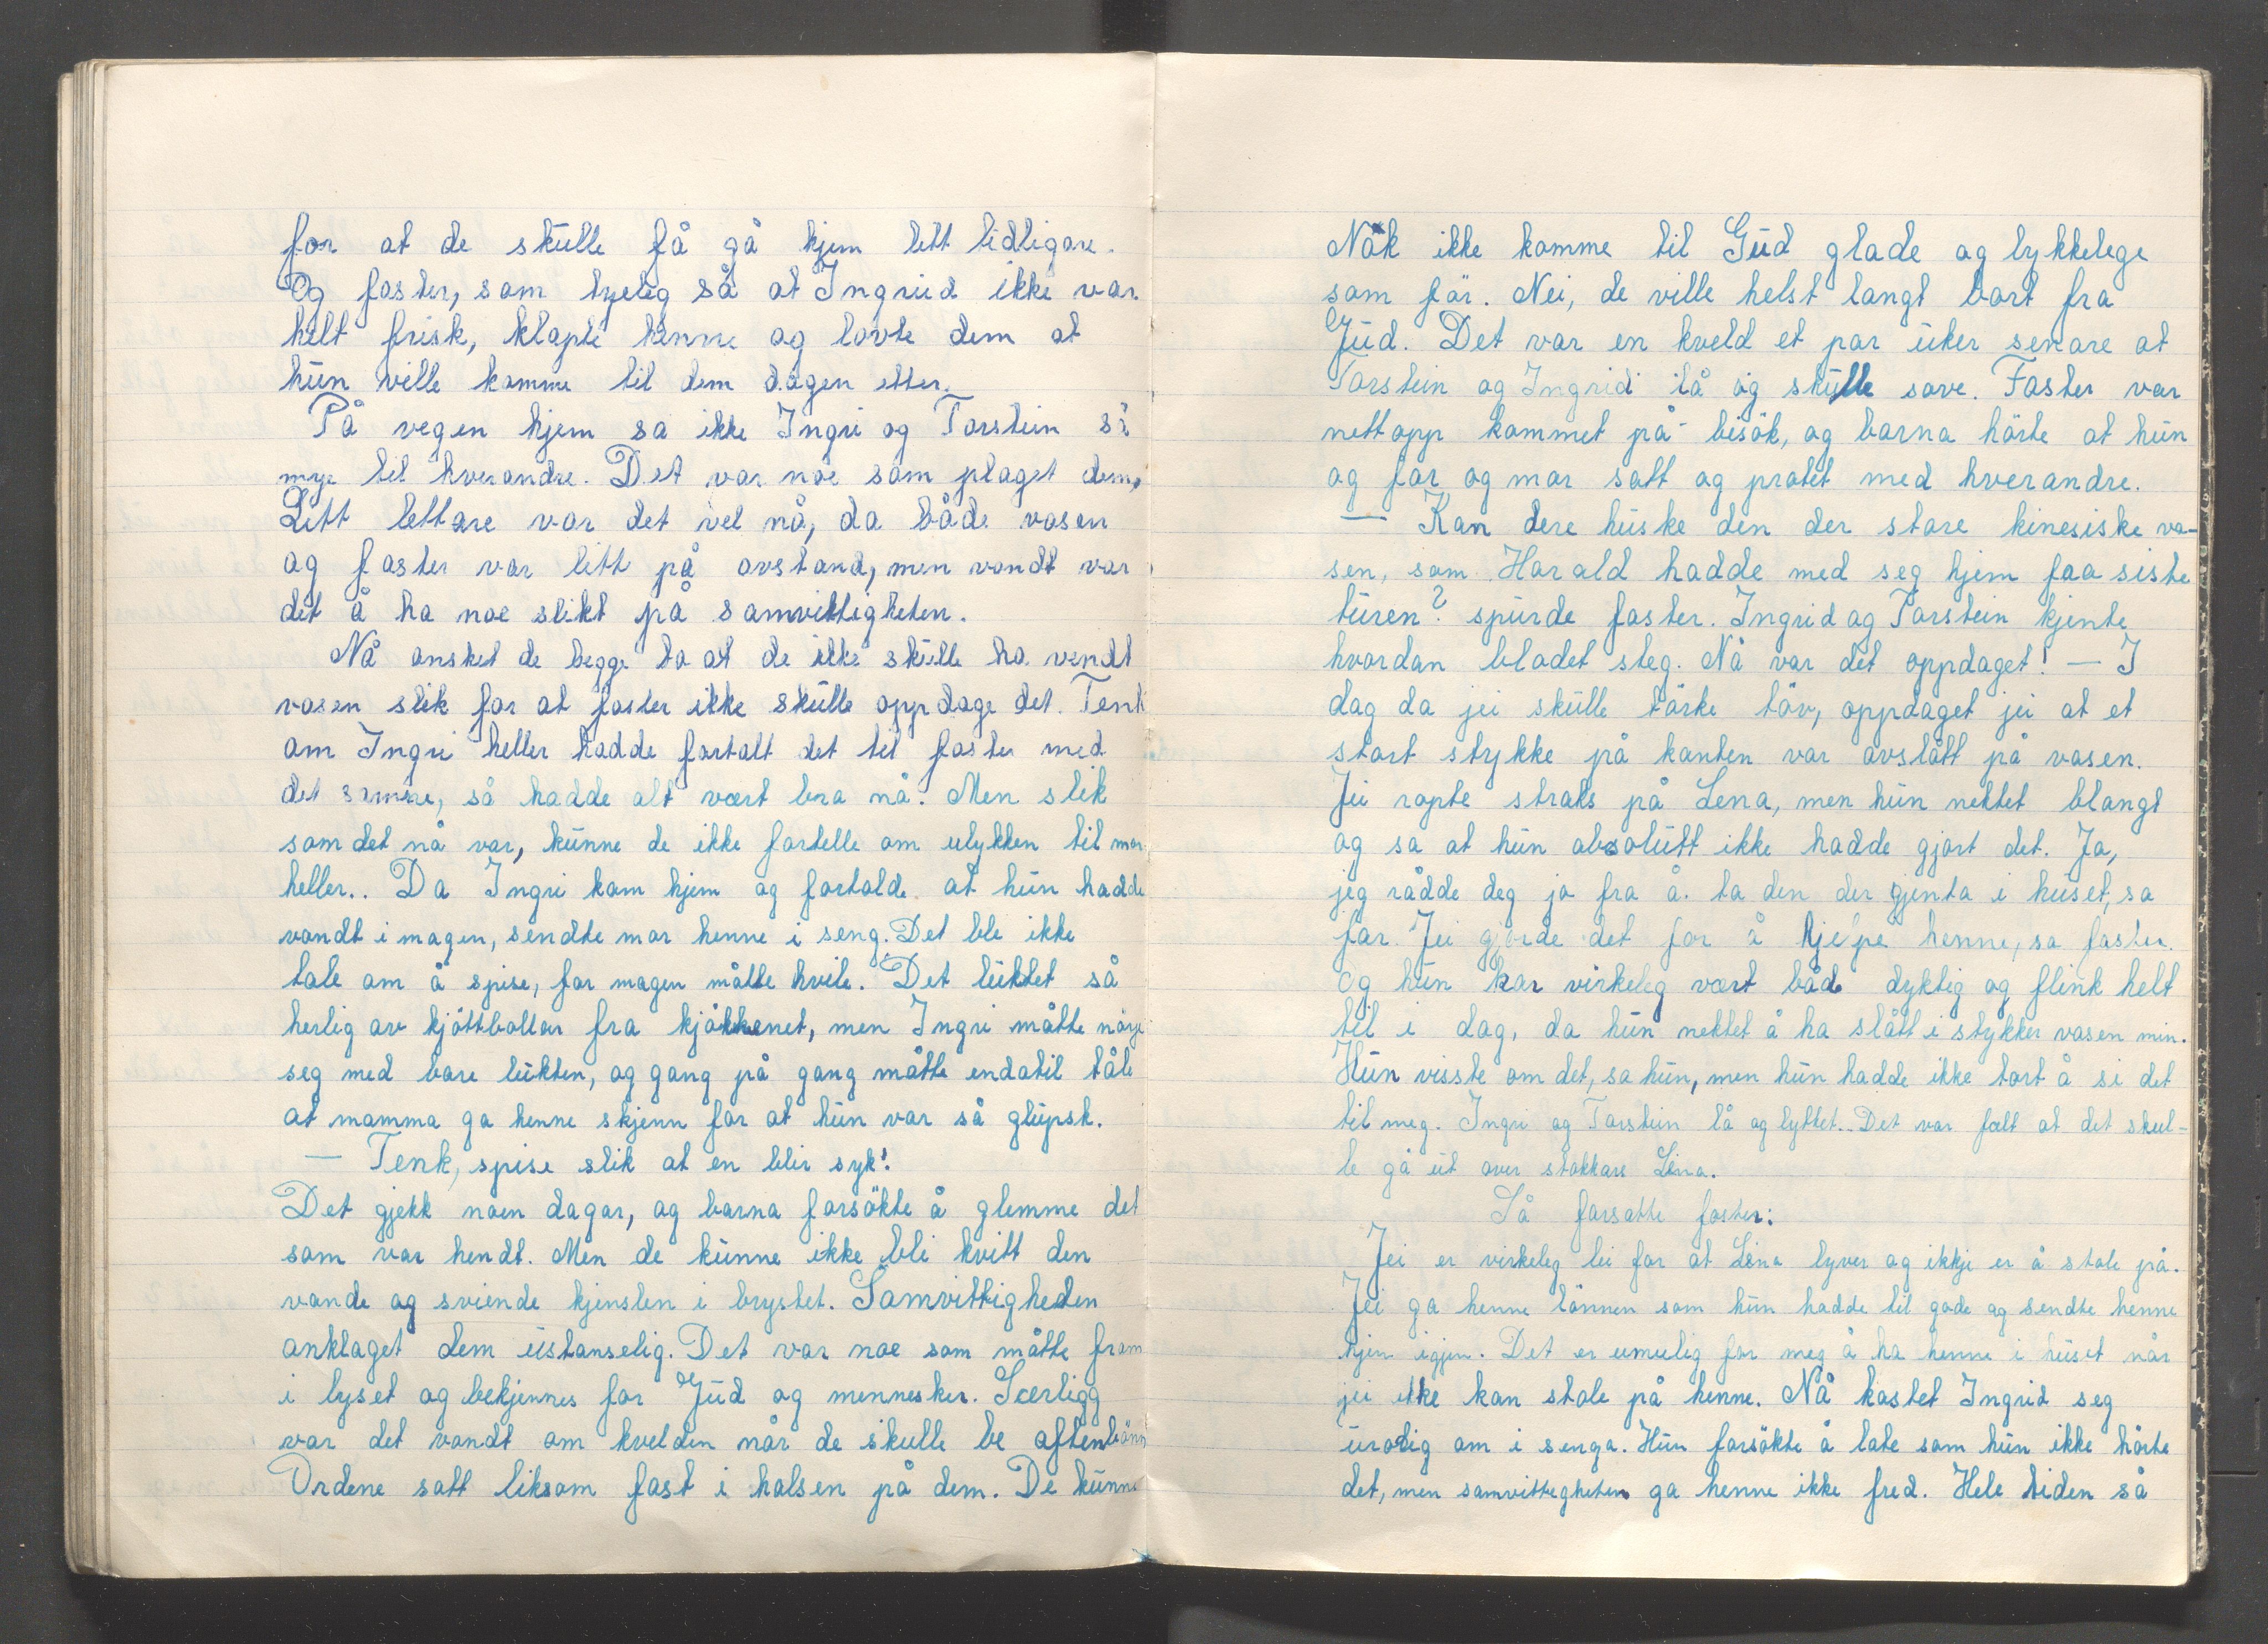 for at de skulle få gå hjem litt tidligare.
Og faster, som tyeleg så at Ingrid ikke var
helt frisk, klapte henne og lovte dem at
hun ville komme til dem dagen etter.
På vegen hjem sa ikke Ingri og Torstein så
mye til hverandre. Det var noe som plaget dem,
Litt lettare var det vel nå, da både vasen
og faster var litt på avstand, men vondt var
det å ha noe slikt på samvittigheten.
Nå ansket de begge to at de ikke skulle ha vendt
vasen slik for at faster ikke skulle oppdage det. Tenk
om Ingri heller hadde fortalt det til faster med
det samme, så hadde alt vært bra nå. Men slik
som det nå var, kunne de ikke fortelle om ulykken til mor
heller.. Da Ingri kom hjem og fortalde at hun hadde
vondt i magen, sendte mor henne i seng. Det ble ikke
tale om å spise, for magen måtte hvile. Det luktet så
herlig av kjöttbollar fra kjökkenet, men Ingri måtte nöye
seg med bare lukten, og gang på gang måtte endatil tåle
at mamma ga henne skjenn for at hun var så glupsk.
— Tenk, spise slik at en blir syk!
Det gjekk noen dagar, og barna forsökte å glemme det
som var hendt. Men de kunne ikke bli kvitt den
vonde og sviende kjenslen i brystet. Samvittigheden
anklaget dem ustanselig. Det var noe som måtte fram
i lyset og bekjennes for Gud og mennesker. Særligg
var det vondt om kvelden når de skulle be aftenbönn
Ordene satt liksom fast i halsen på dem. De kunne
Nåk ikke komme til Gud glade og lykkelege
somför. Nei, de ville helst langt bort fra
Gud. Det var en kveld et par uker senare at
Torstein og Ingrid lå og skulle sove. Faster var
nettopp kommet på besök, og barna hörte at hun
og far og mor satt og pratet med hverandre.
— Kan dere huske den der store kinesiske va-
sen, som Harald hadde med seg hjem faa siste
turen? spurde faster. Ingrid og Torstein kjente
hvordan blodet steg. Nå var det oppdaget! — I
dag da jei skulle törke töv, oppdaget jei at et
stort stykke på kanten var avslått på vasen.
Jei ropte straks på Lena, men hun nektet blangt
og sa at hun absolutt ikke hadde gjort det. Ja,
jeg rådde deg jo fra å ta den der gjenta i huset, sa
far. Jei gjorde det for å hjelpe henne, sa faster.
Og hun har virkeleg vært både dyktig og flink helt
til i dag, da hun nektet å ha slått i stykker vasen min.
Hun visste om det, sa hun, men hun hadde ikke tort å si det
til meg. Ingri og Torstein lå og lyttet. Det var fælt at det skul-
le gå ut over stakkars Lena.
Så forsatte faster:
Jei er virkeleg lei for at Lena lyver og ikkje er å stole på.
Jei ga henne lönnen som hun hadde til gode og sendte henne
hjem igjen. Det er umulig for meg å ha henne i huset når
jei ikke kan stole på henne. Nå kastet Ingrid seg
urolig om i senga. Hun forsökte å late som hun ikke hörte
det, men samvittegheten ga henne ikke fred. Hele tiden så